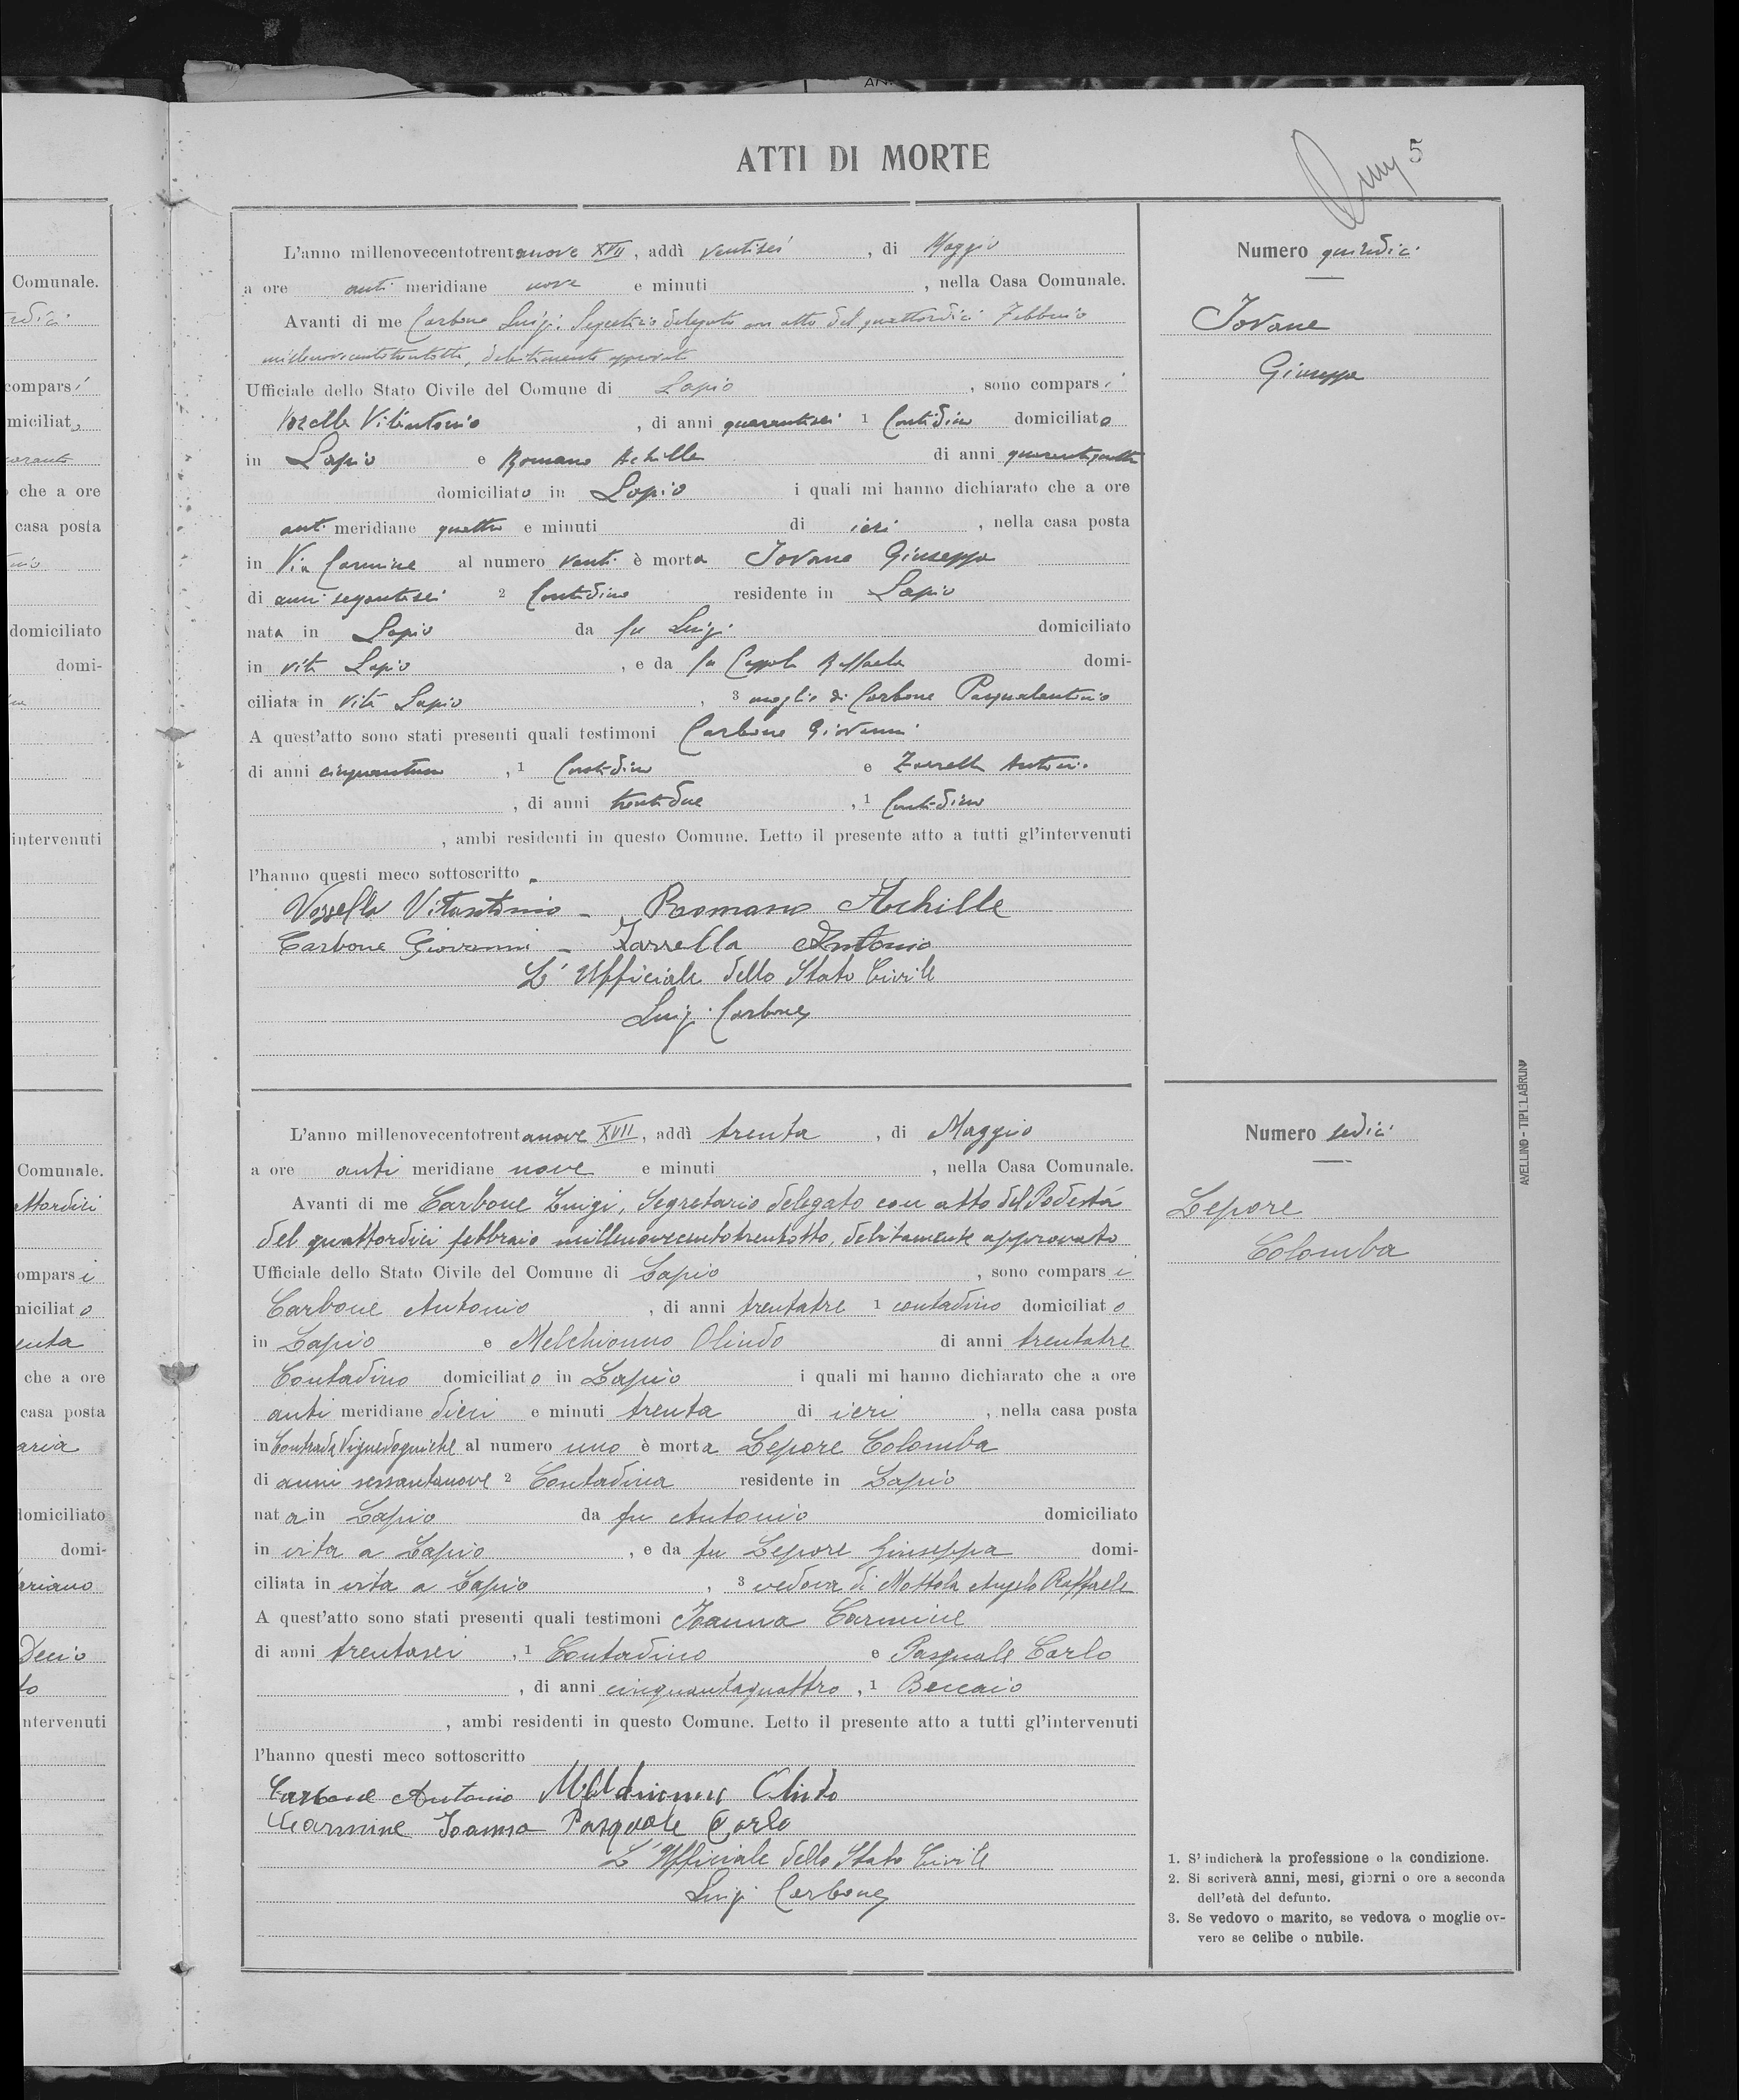 ATTI DI MORTE
5
L'anno millenovecentotrentanove XVII, addì ventisei, di Maggio
a ore anti meridiane nove e minuti , nella Casa Comunale.
Avanti di me Carbone Luigi, Segretario delegato con atto del quattordici Febbraio
millenovecentotrentotto, debitamente approvato
Ufficiale dello Stato Civile del Comune di Lapio, sono comparsi
Vozella Vitantonio, di anni quarantasei 1 Contadino domiciliato
in Lapio e Romano Achille di anni
domiciliato in Lapio i quali mi hanno dichiarato che a ore
anti meridiane quattro e minuti di ieri, nella casa posta
in Via Carmine al numero venti è morta Iovane Giuseppa
di anni 2 Contadina residente in Lapio
nata in Lapio da fu Luigi domiciliato
in vita Lapio, e da fu Raffaela domi-
ciliata in vita Lapio, 3 moglie di Carbone Pasqualantonio
A quest'atto sono stati presenti quali testimoni Carbone Giovanni
di anni cinquantuno, 1 Contadino e Zarrella Antonio
, di anni trentadue, 1 Contadino
, ambi residenti in questo Comune. Letto il presente atto a tutti gl'intervenuti
l'hanno questi meco sottoscritto.
Vozzella Vitantonio - Romano Achille
Carbone Giovanni - Zarrella Antonio
L'Ufficiale dello Stato Civile
Luigi Carbone
Numero quindici
Iovane
Giuseppa
L'anno millenovecentotrentanove XVII, addì trenta, di Maggio
a ore anti meridiane nove e minuti , nella Casa Comunale.
Avanti di me Carbone Luigi, Segretario delegato con atto del Podestà
del quattordici febbraio millenovecentotrentotto, debitamente approvato
Ufficiale dello Stato Civile del Comune di Lapio, sono comparsi
Carbone Antonio, di anni trentatre 1 contadino domiciliato
in Lapio e Melchionno Olindo di anni trentatre
Contadino domiciliato in Lapio i quali mi hanno dichiarato che a ore
anti meridiane dieci e minuti trenta di ieri, nella casa posta
in Contrada al numero uno è morta Lepore Colomba
di anni sessantanove 2 Contadina residente in Lapio
nata in Lapio da fu Antonio domiciliato
in vita a Lapio, e da fu Lepore Giuseppa domi-
ciliata in vita a Lapio, 3 vedova di Mottola Angelo Raffaele
A quest'atto sono stati presenti quali testimoni Ioanna Carmine
di anni trentasei, 1 Contadino e Pasquale Carlo
, di anni cinquantaquattro, 1 Beccaio
, ambi residenti in questo Comune. Letto il presente atto a tutti gl'intervenuti
l'hanno questi meco sottoscritto
Carbone Antonio Melchionno Olindo
Carmine Ioanna Pasquale Carlo
L'Ufficiale dello Stato Civile
Luigi Carbone
Numero sedici
Lepore
Colomba
1. S'indicherà la professione o la condizione.
2. Si scriverà anni, mesi, giorni o ore a seconda
dell'età del defunto.
3. Se vedovo o marito, se vedova o moglie ov-
vero se celibe o nubile.
AVELLINO - TIP. LABRUNO
Comunale.
comparsi
miciliato
che a ore
casa posta
domiciliato
domi-
intervenuti
Comunale.
comparsi
miciliato
che a ore
casa posta
domiciliato
domi-
intervenuti